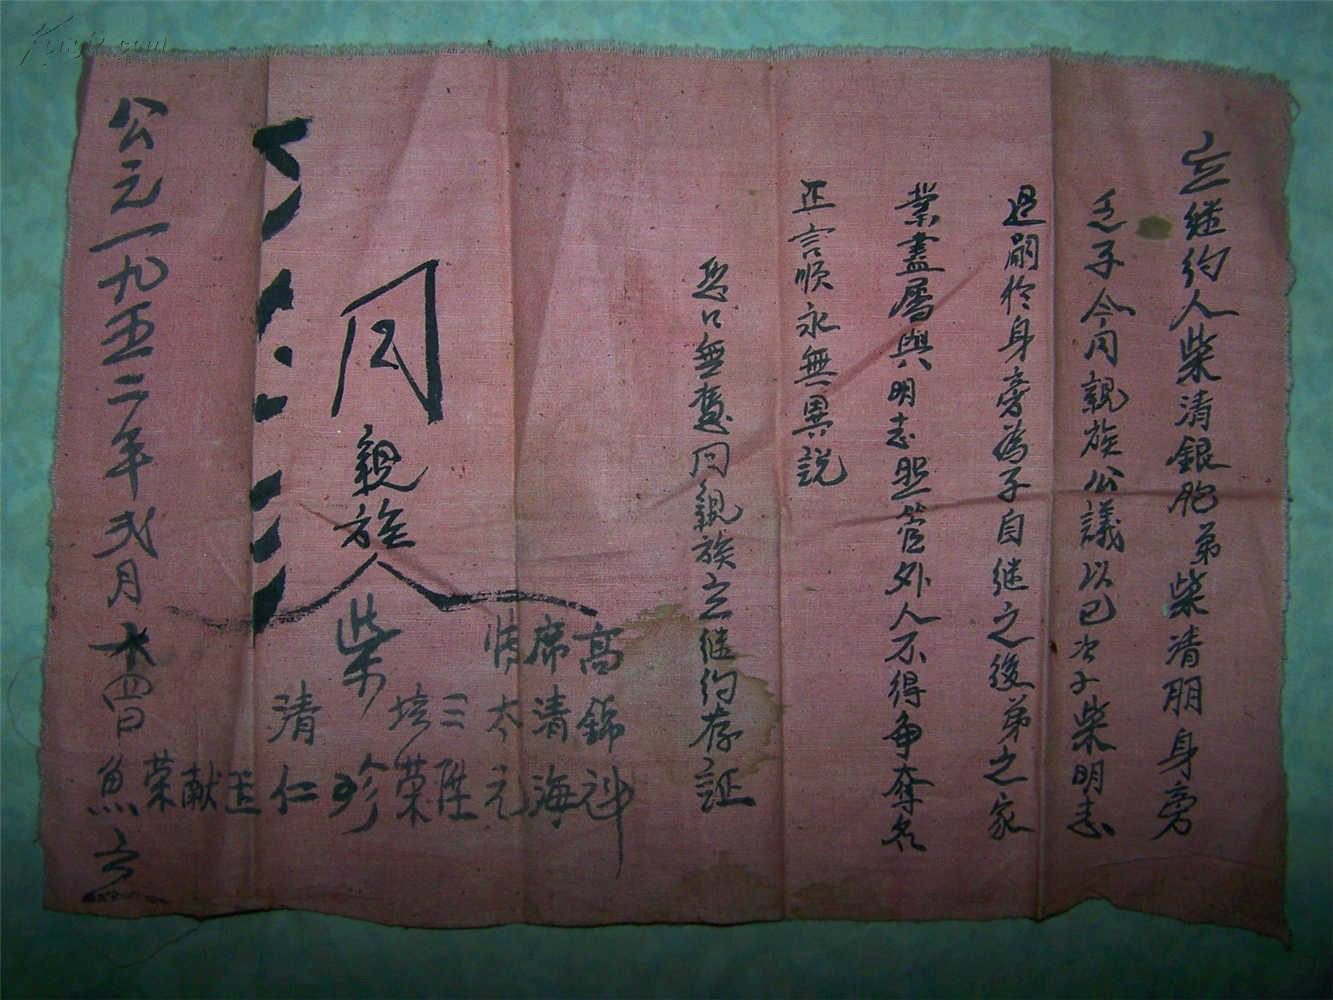 立继约人柴清銀胞弟柴清朋身旁
乏子今同親族公議以己次子柴明志
過嗣於身旁為子自继之後弟之家
業盡屬與明志照管外人不得争奪名
正言順永無異説
恐口無凴同親族立继约存証
同親族人
高錦
席清海
太元
三陞
培荣
柴珍
清仁
献
荣
魚
公元一九五二年弍月十四日 立